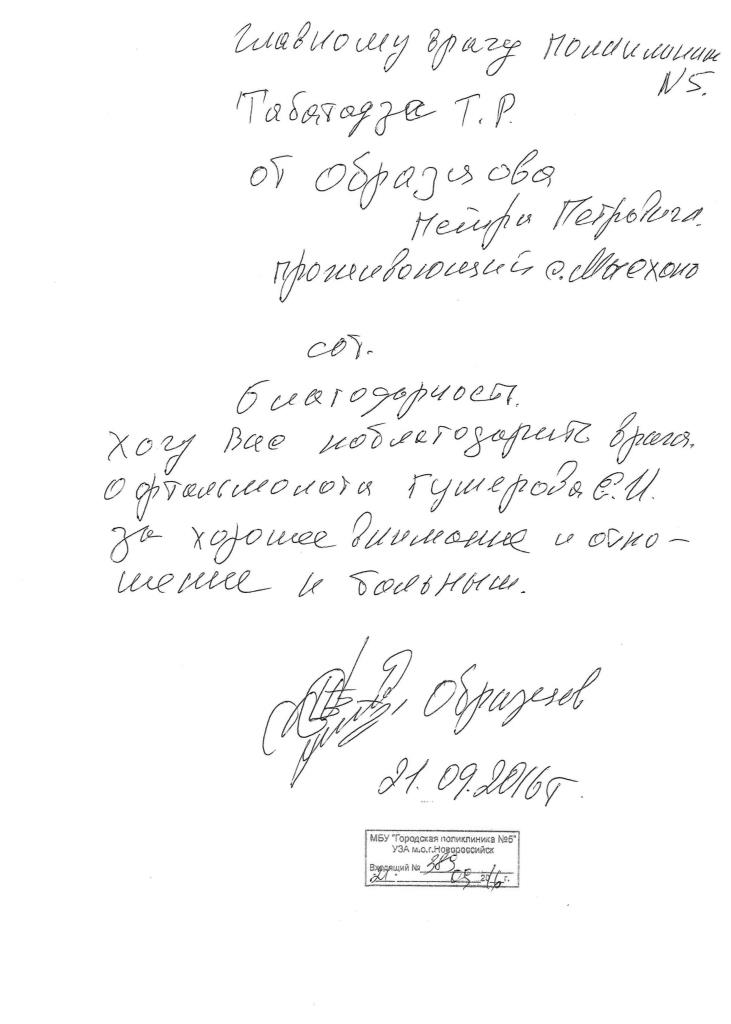 Главному врачу поликлиники
N5.
Табатадзе Т.Р.
от Образцова
Петра Петровича.
проживающий с. Мысхако
сот.
благодарность.
Хочу Вас поблагодарить врача.
Офтальмолога Гушерова Е.И.
за хорошее внимание и отно-
шение к больным.
Образцов
21.09.2016г.
МБУ "Городская поликлиника №5"
УЗА м.о.г.Новороссийск
Входящий № 389
21. 09 2016 г.